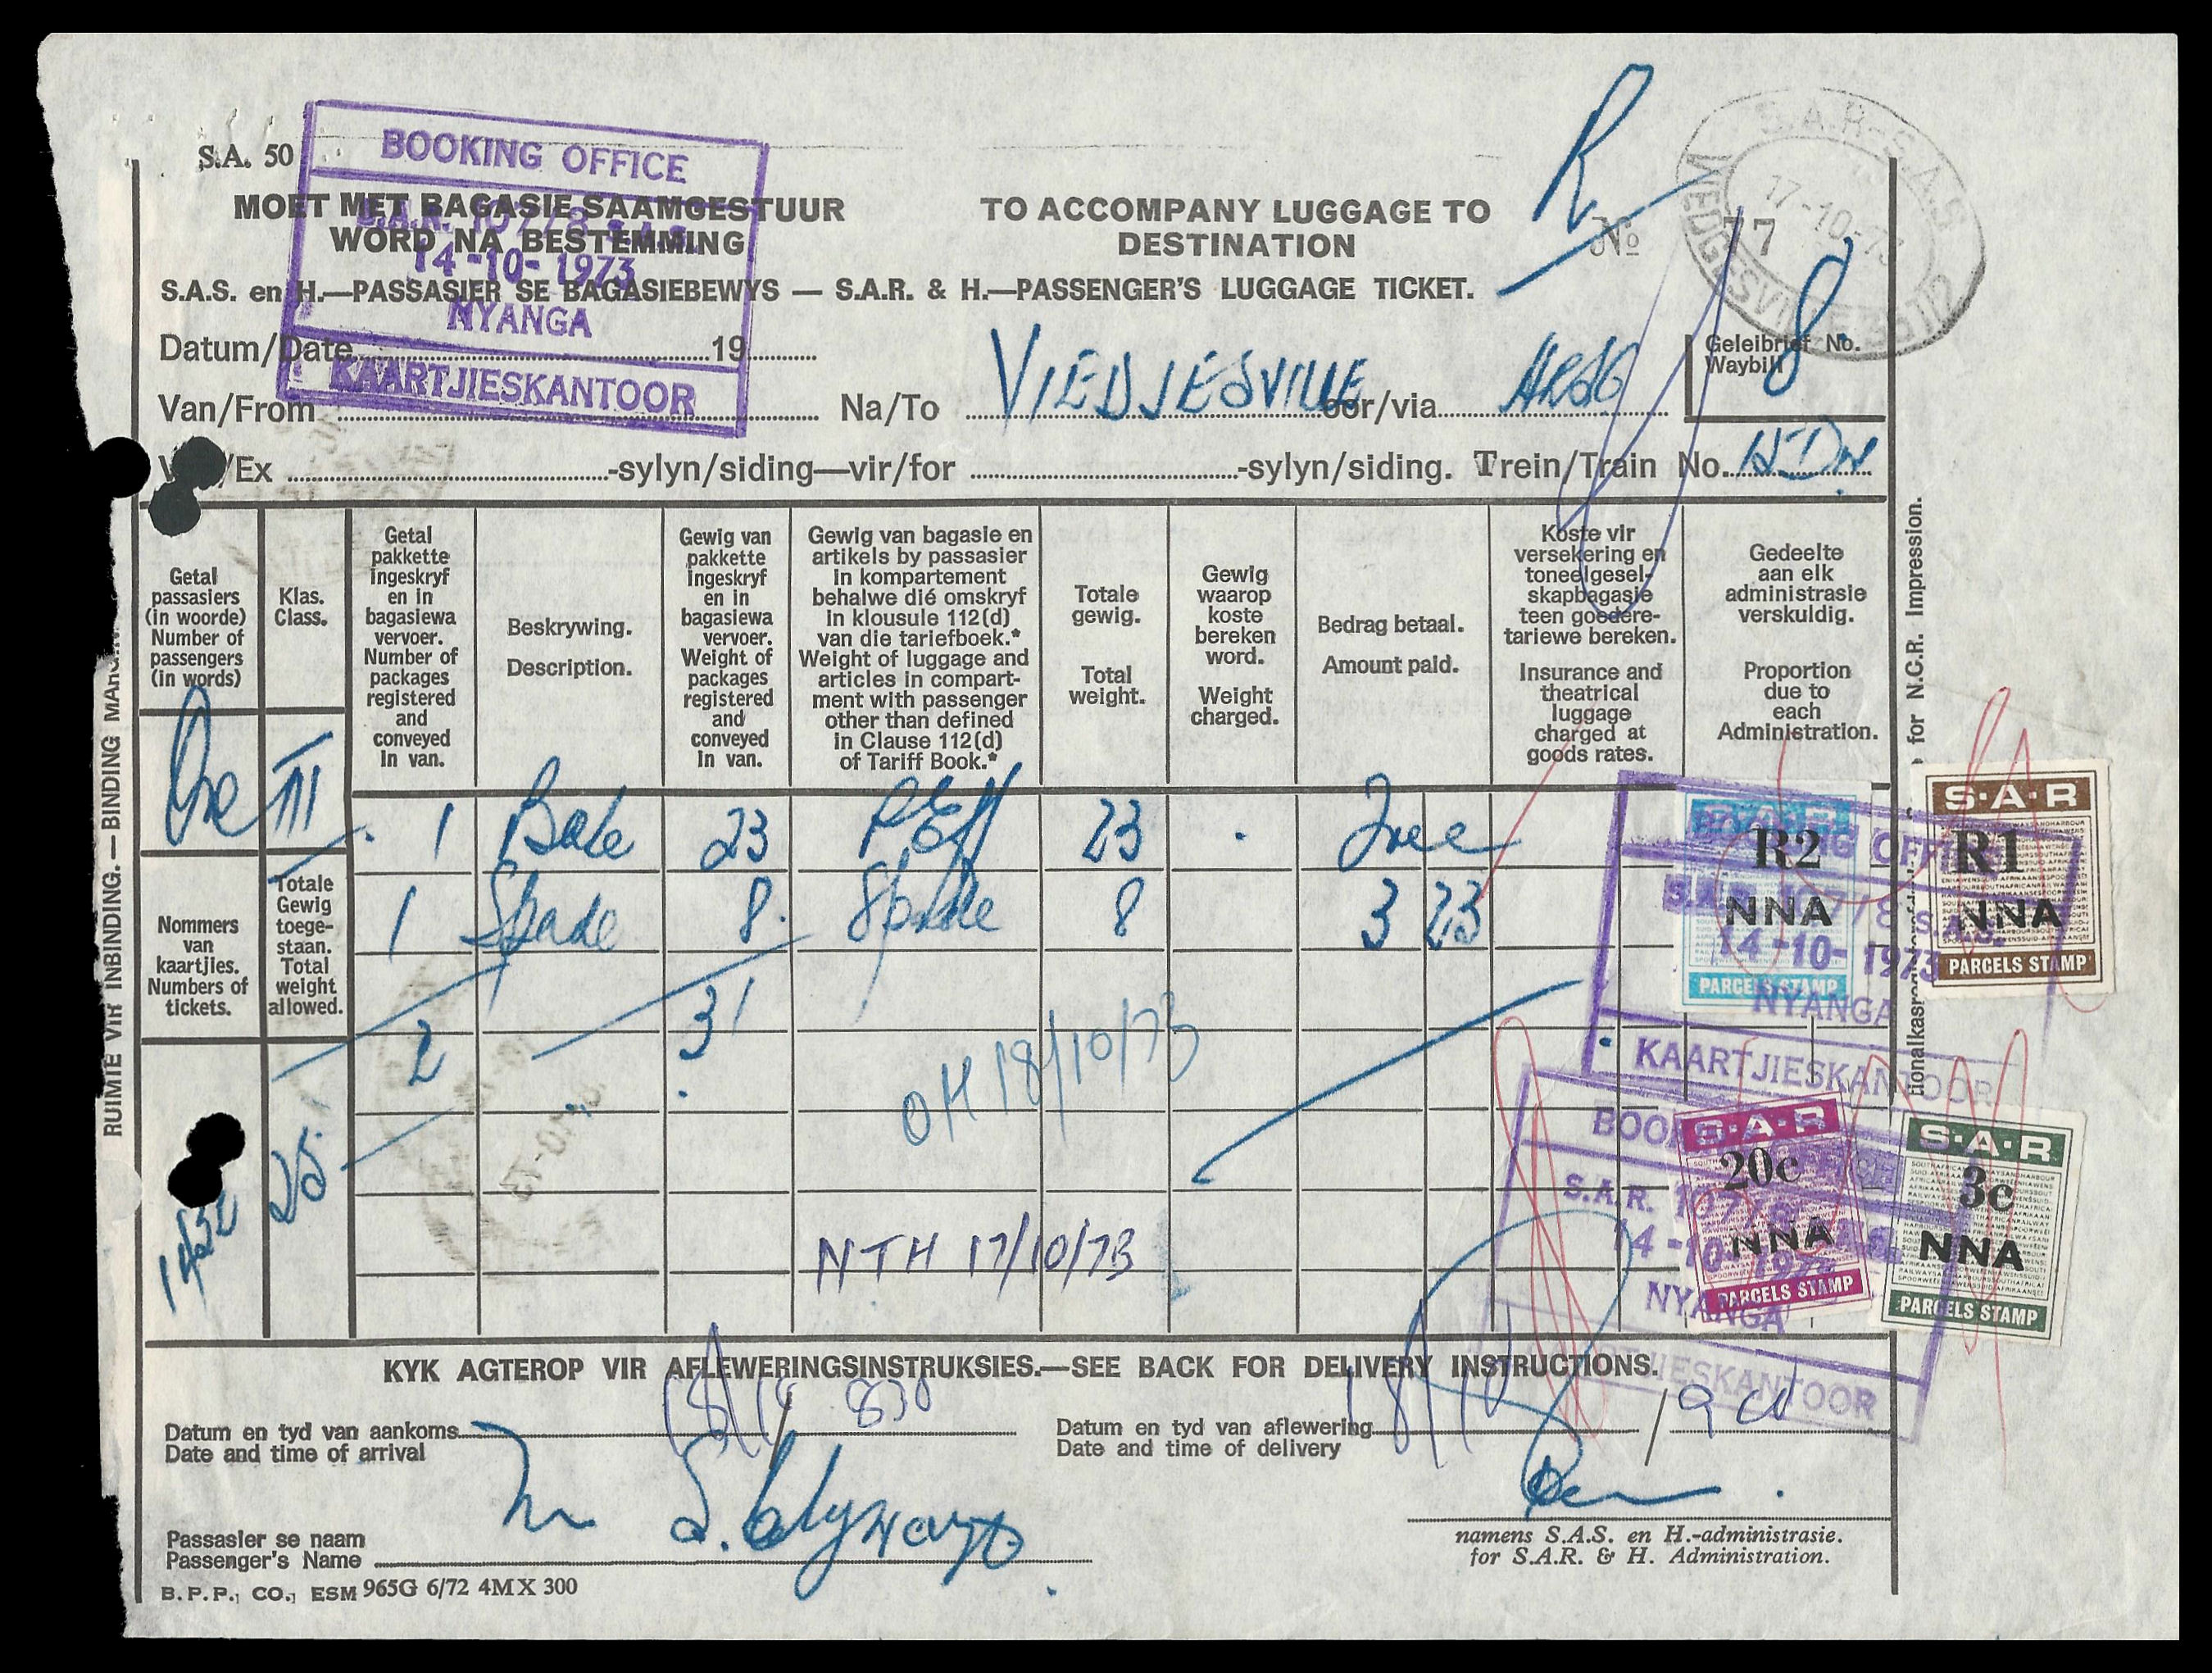 S.A. 50
BOOKING OFFICE
S.A.R. 1077/8 S.A.S.
14-10-1973
NYANGA
KAARTJIESKANTOOR
MOET MET BAGASIE SAAMGESTUUR
WORD NA BESTEMMING
TO ACCOMPANY LUGGAGE TO
DESTINATION
R
No 77
S.A.R-S.A.S
17-10-73
S.A.S. en H.—PASSASIER SE BAGASIEBEWYS — S.A.R. & H.—PASSENGER'S LUGGAGE TICKET.
Datum/Date 19
Geleibrief No.
Waybill
8
Van/From Na/To VIEDJESVILLE oor/via
/Ex -sylyn/siding—vir/for -sylyn/siding. Trein/Train No.
Getal
passasiers
(in woorde)
Number of
passengers
(in words)
Klas.
Class.
Getal
pakkette
ingeskryf
en in
bagasiewa
vervoer.
Number of
packages
registered
and
conveyed
in van.
Beskrywing.
Description.
Gewig van
pakkette
ingeskryf
en in
bagasiewa
vervoer.
Weight of
packages
registered
and
conveyed
in van.
Gewig van bagasie en
artikels by passasier
in kompartement
behalwe dié omskryf
in klousule 112(d)
van die tariefboek.*
Weight of luggage and
articles in compart-
ment with passenger
other than defined
in Clause 112(d)
of Tariff Book.*
Totale
gewig.
Total
weight.
Gewig
waarop
koste
bereken
word.
Weight
charged.
Bedrag betaal.
Amount paid.
Koste vir
versekering en
toneelgesel-
skapbagasie
teen goedere-
tariewe bereken.
Insurance and
theatrical
luggage
charged at
goods rates.
Gedeelte
aan elk
administrasie
verskuldig.
Proportion
due to
each
Administration.
One III 1 23 P/Eff 23 Free
1 Spade 8 Spade 8 3 23
2 31
Nommers
van
kaartjies.
Numbers of
tickets.
Totale
Gewig
toege-
staan.
Total
weight
allowed.
25
OH 18/10/73
NTH 17/10/73
S·A·R
R2
NNA
PARCELS STAMP
S·A·R
R1
NNA
PARCELS STAMP
BOOKING OFFICE
S.A.R. 1077/8 S.A.S.
14-10-1973
NYANGA
KAARTJIESKANTOOR
S·A·R
20c
NNA
PARCELS STAMP
S·A·R
3c
NNA
PARCELS STAMP
BOOKING OFFICE
S.A.R. 1077/8 S.A.S.
14-10-1973
NYANGA
KAARTJIESKANTOOR
RUIMTE VIR INBINDING.—BINDING
for N.C.R. Impression.
KYK AGTEROP VIR AFLEWERINGSINSTRUKSIES.—SEE BACK FOR DELIVERY INSTRUCTIONS.
Datum en tyd van aankoms 18/10 830
Date and time of arrival
Datum en tyd van aflewering 18/10 / 900
Date and time of delivery
Passasier se naam
Passenger's Name
namens S.A.S. en H.-administrasie.
for S.A.R. & H. Administration.
B.P.P., CO., ESM 965G 6/72 4MX 300